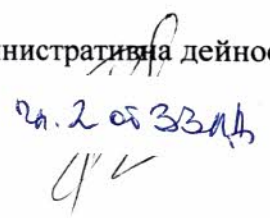 нистративна дейнос
чл. 2 от ЗЗЛД